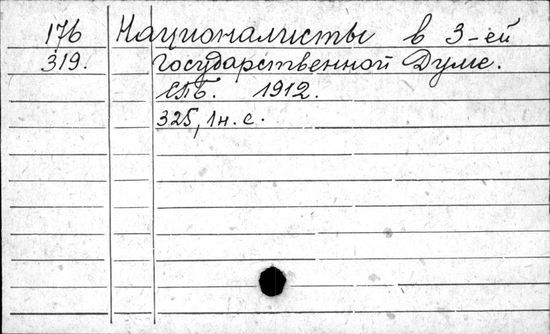 176 Националисты в 3-ей
319. Государственной Думе.
СПб. 1912.
325, 1 н. с.